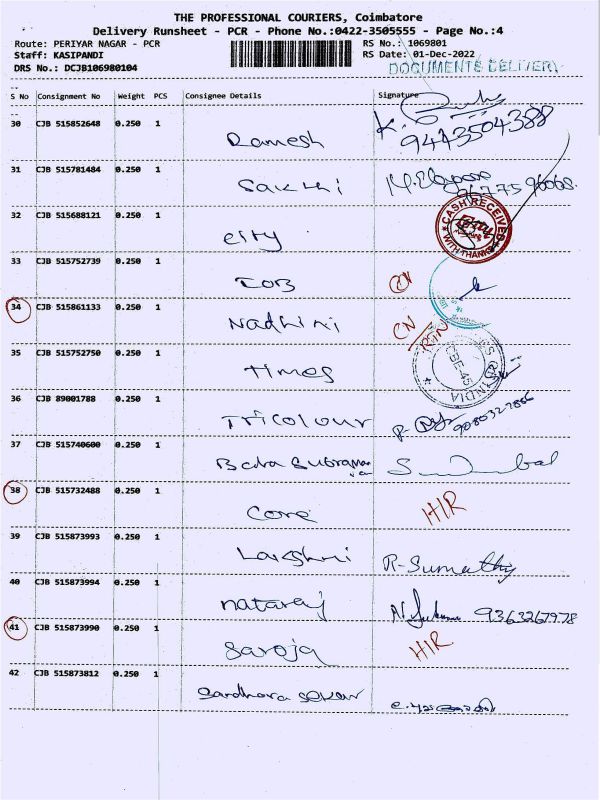 THE PROFESSIONAL COURIERS, Coimbatore
Delivery Runsheet - PCR - Phone No.:0422-3505555 - Page No.:4
Route: PERIYAR NAGAR - PCR RS No.: 1069801
Staff: KASIPANDI RS Date: 01-Dec-2022
DRS No.: DCJB106980104 DOCUMENTS DELIVERY
S No Consignment No Weight PCS Consignee Details Signature
30 CJB 515852648 0.250 1 Ramesh 9443504388
31 CJB 515781484 0.250 1 Sakthi
32 CJB 515688121 0.250 1 city CASH RECEIVED WITH THANKS
33 CJB 515752739 0.250 1 IOB CN
34 CJB 515861133 0.250 1 Nadhini CN
RTN
35 CJB 515752750 0.250 1 Times CBE-45 INDIA
36 CJB 89001788 0.250 1 Tricolour
37 CJB 515740600 0.250 1 Bala Subraman
38 CJB 515732488 0.250 1 Core HIR
39 CJB 515873993 0.250 1 Lakshmi R-Sumathy
40 CJB 515873994 0.250 1 nataraj 9363267978
41 CJB 515873990 0.250 1 Saroja HIR
42 CJB 515873812 0.250 1